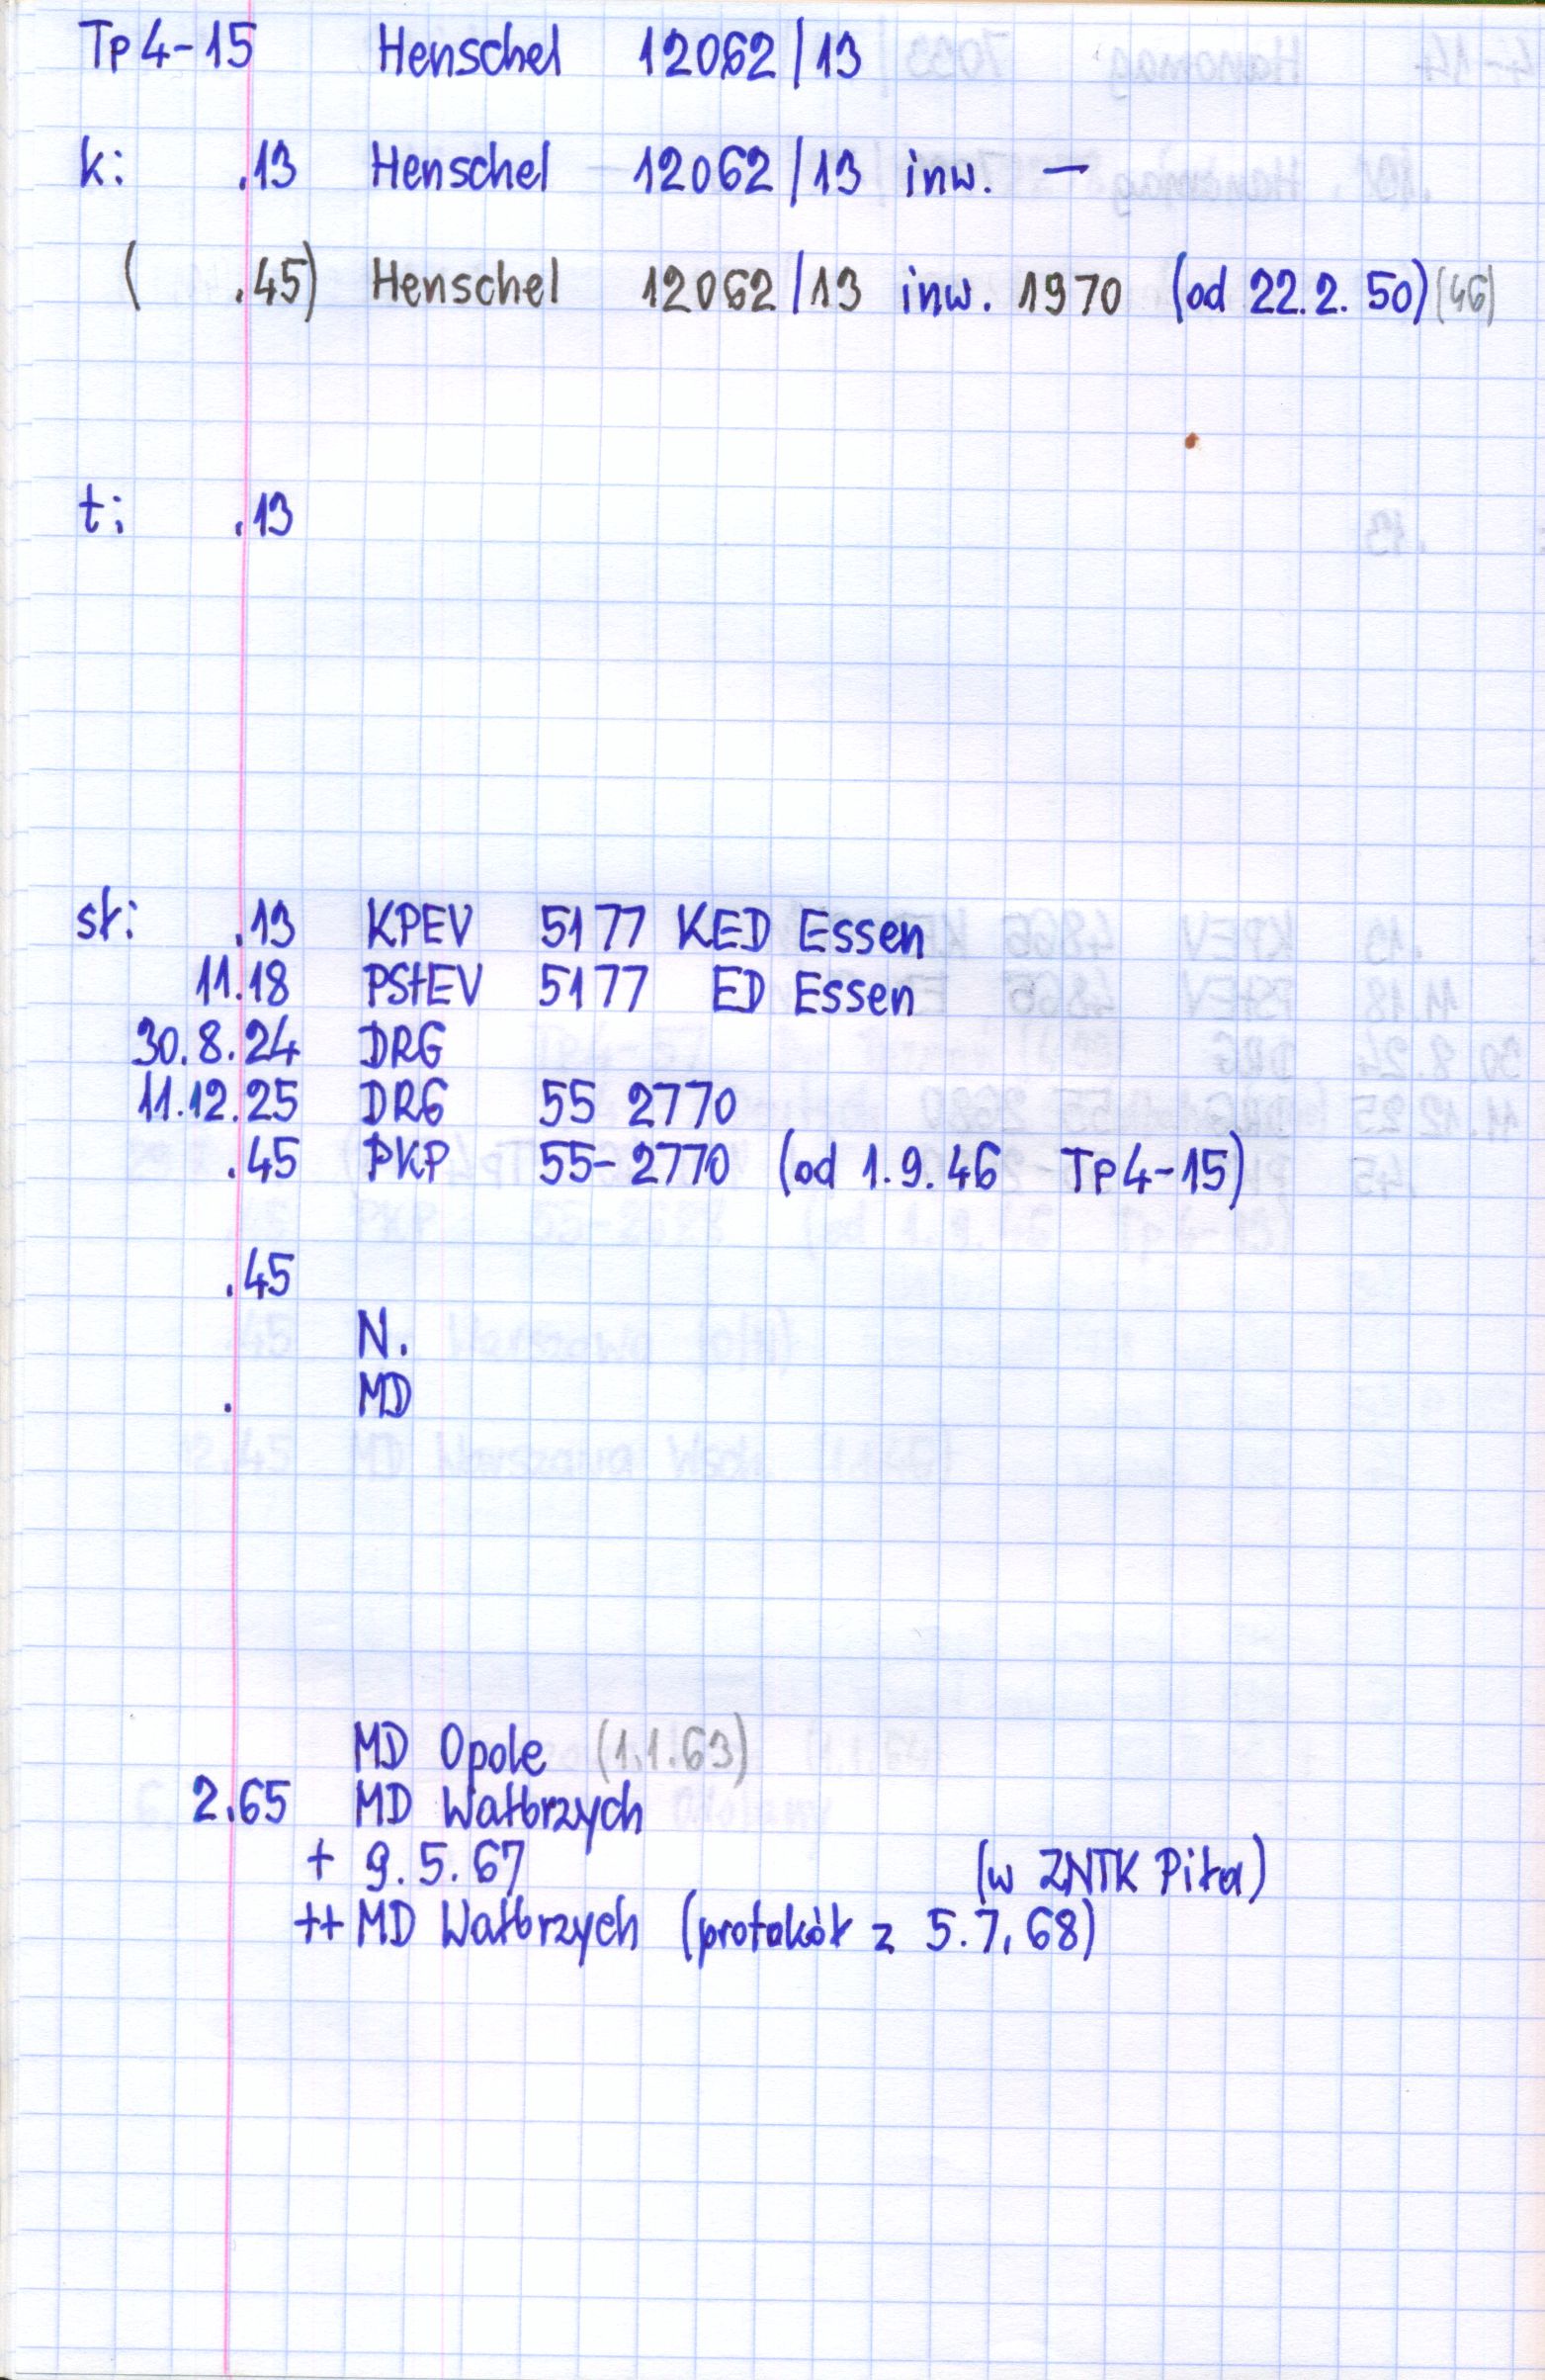 Tp4-15 Henschel 12062/13
k: .13 Henschel 12062/13 inw. —
( .45) Henschel 12062/13 inw. 1970 (od 22.2.50) (46)
t: .13
st: .13 KPEV 5177 KED Essen
11.18 PStEV 5177 ED Essen
30.8.24 DRG
11.12.25 DRG 55 2770
.45 PKP 55-2770 (od 1.9.46 Tp4-15)
.45
N.
. MD
MD Opole (1.1.63)
2.65 MD Wałbrzych
+ 9.5.67 (w ZNTK Piła)
++ MD Wałbrzych (protokół z 5.7.68)